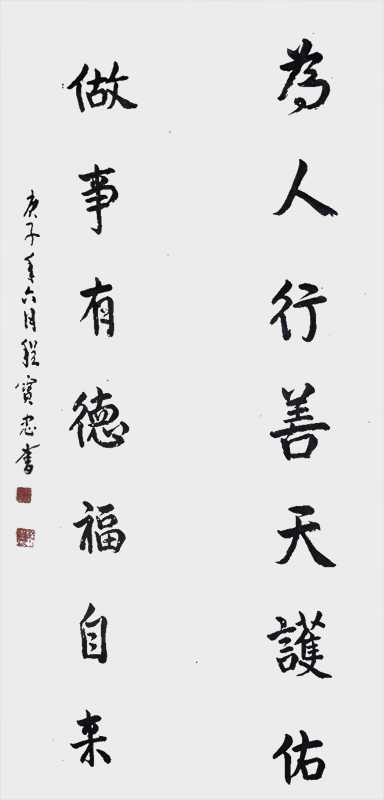 為人行善天護佑
做事有德福自来
庚子年六月程寶忠書